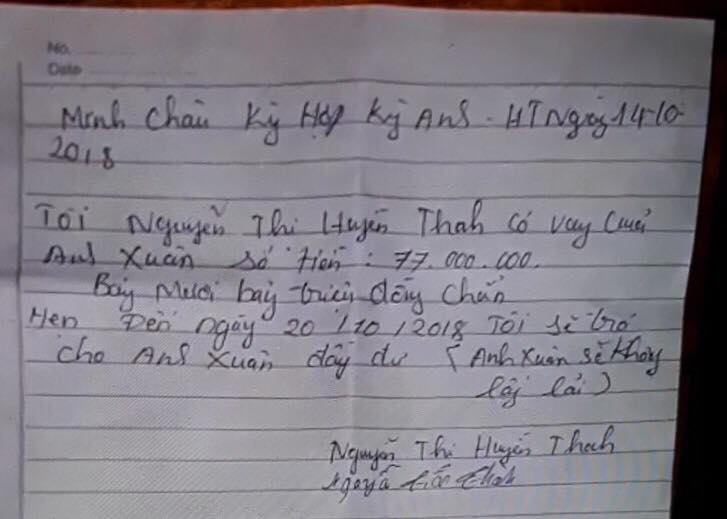 No.
Date
Minh Châu Kỳ Hợp Kỳ Anh - HT Ngày 14-10-
2018
Tôi Nguyễn Thi Huyền Thah có vay của
Anh Xuân số tiền : 77.000.000.
Bảy Mươi bảy triệu đồng chẵn
Hẹn Đến ngày 20/10/2018 Tôi sẽ trả
cho Anh Xuân đầy đủ (Anh Xuân sẽ không
lấy lải)
Nguyễn Thi Huyền Thah